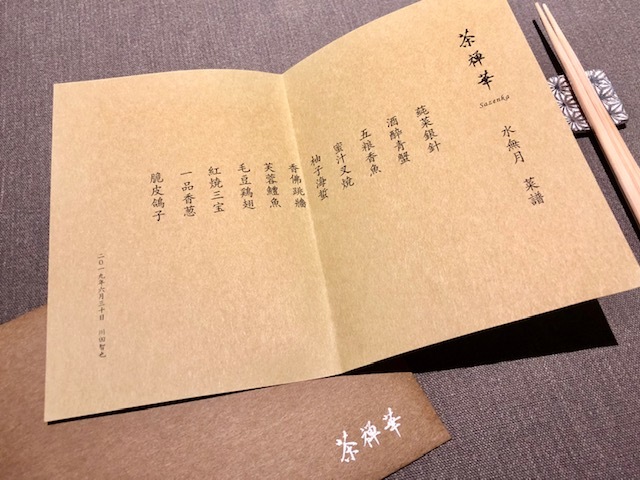 茶禅華
Sazenka
水無月 菜譜
蒓菜銀針
酒醉青蟹
五粮香魚
蜜汁叉焼
柚子海蜇
香佛跳牆
芙蓉鱧魚
毛豆鶏翅
紅焼三宝
一品香葱
脆皮鴿子
二〇一九年六月三十日 川田智也
茶禅華